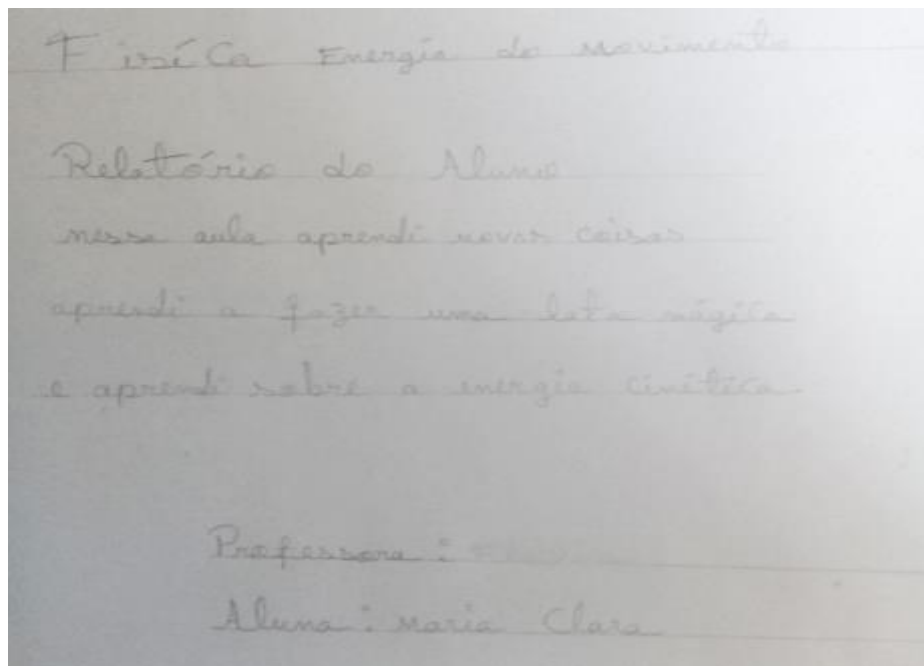 Fisíca Energia do movimento
Relatório do Aluno
nessa aula aprendi novas coisas
aprendi a fazer uma lata mágica
e aprendi sobre a energia cinética.
Professora:
Aluna: Maria Clara